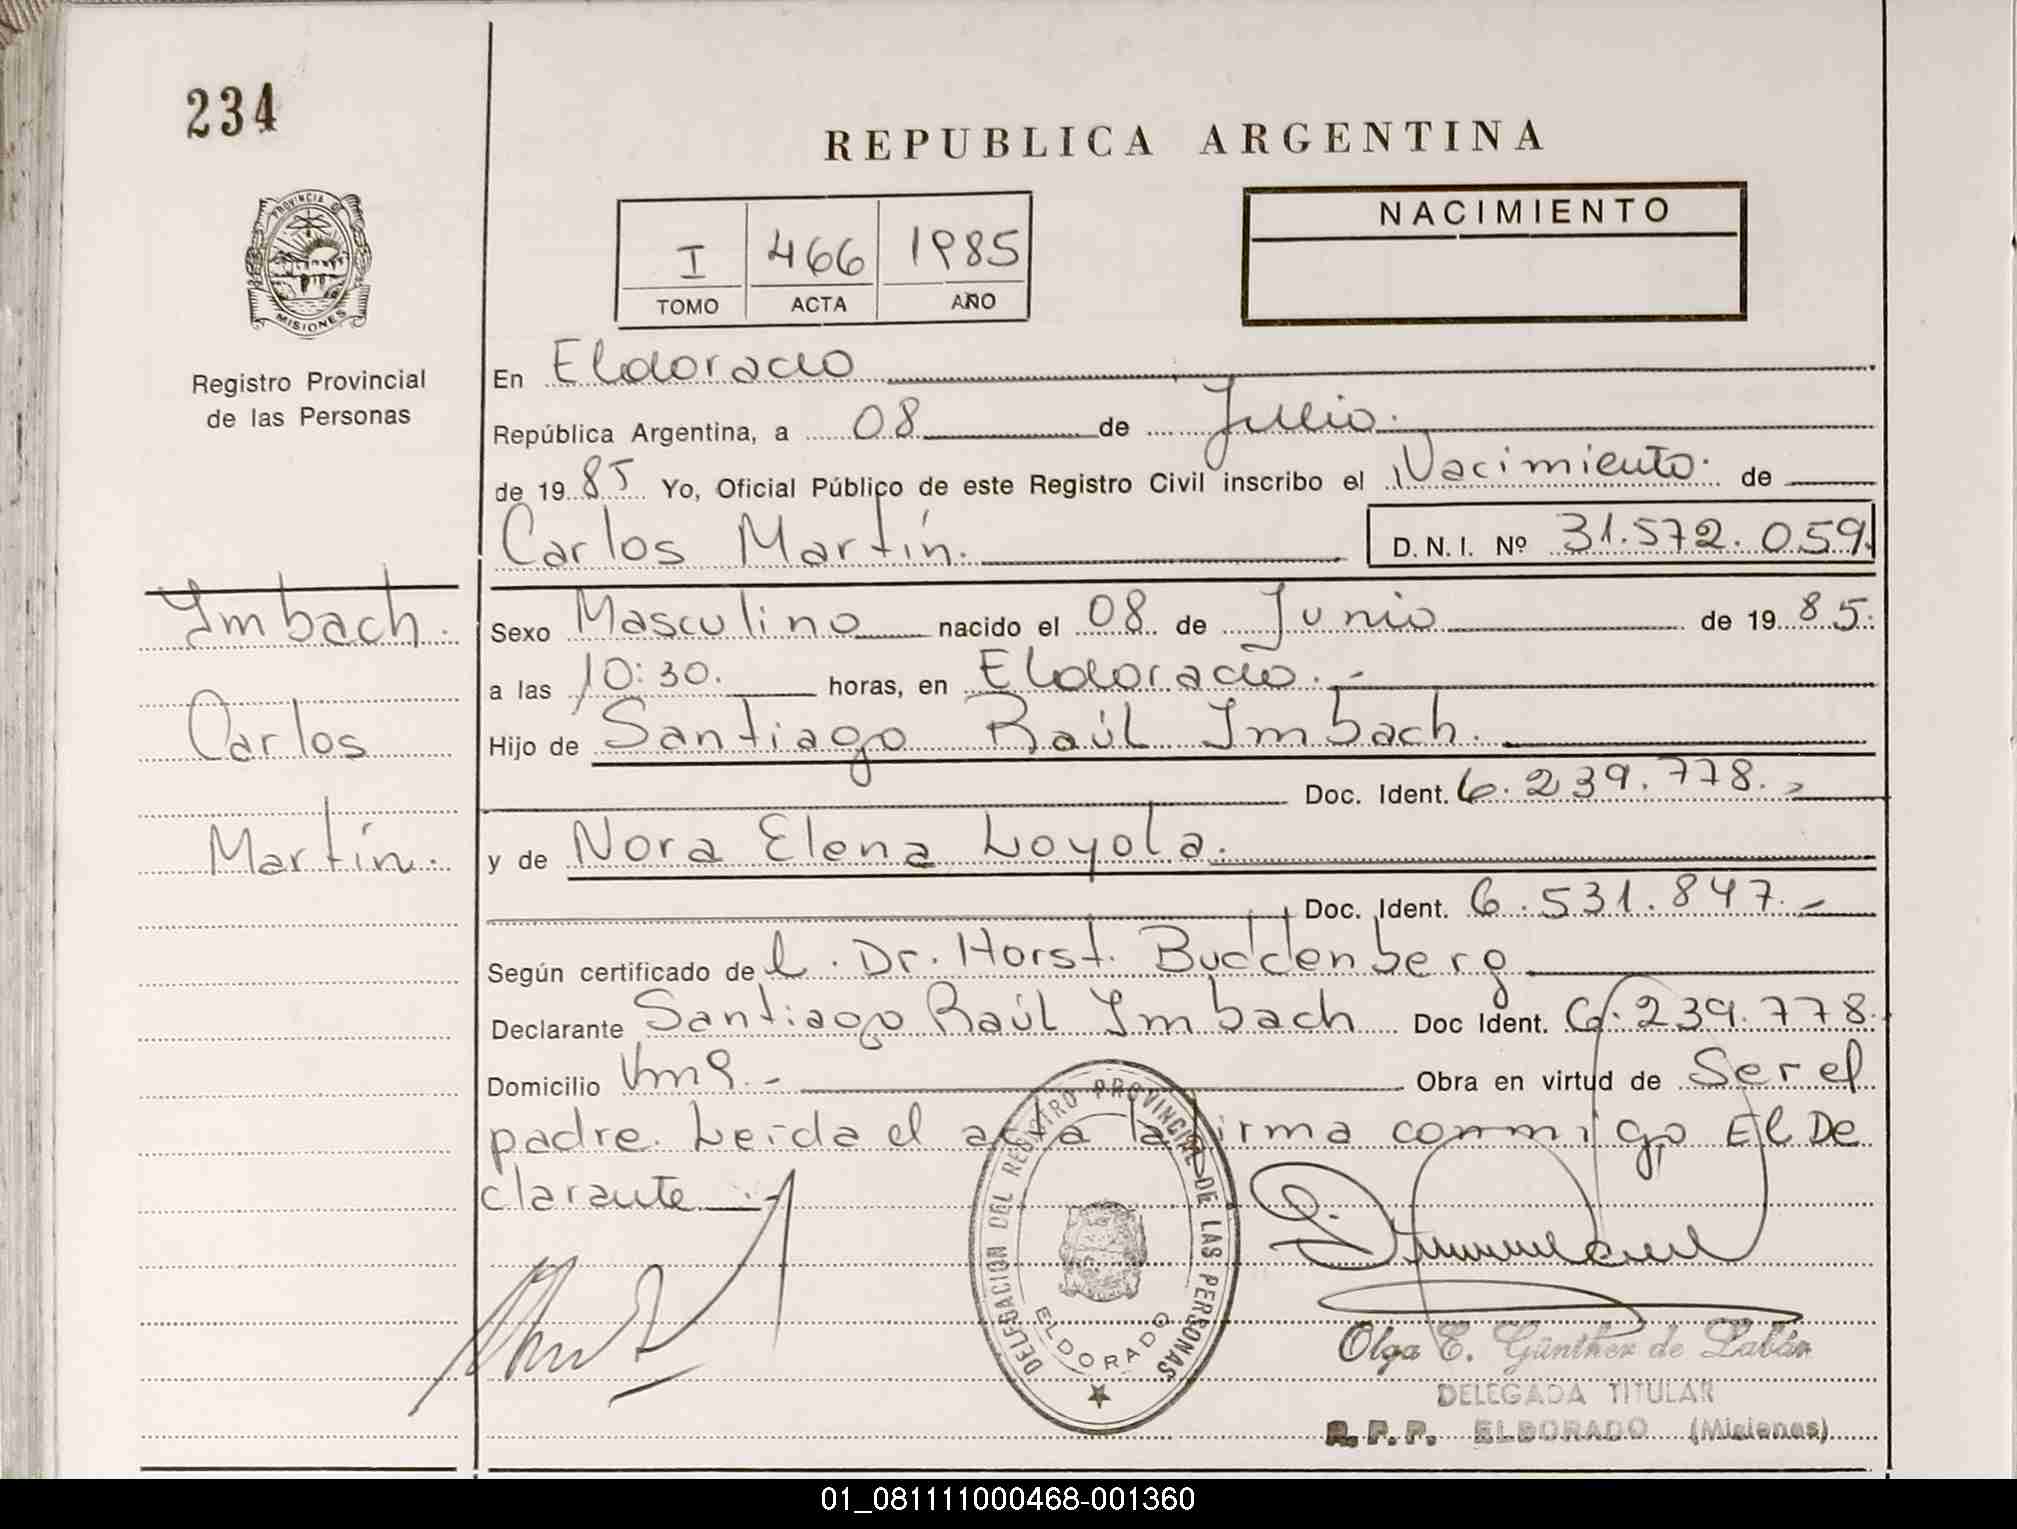 234
REPUBLICA ARGENTINA
PROVINCIA DE
MISIONES
Registro Provincial
de las Personas
I 466 1985
TOMO ACTA AÑO
NACIMIENTO
En Eldorado
República Argentina, a 08 de Julio.
de 19 85 Yo, Oficial Público de este Registro Civil inscribo el Nacimiento. de
Carlos Martín. D. N. I. Nº 31.572.059.
Imbach.
Carlos
Martín.
Sexo Masculino nacido el 08 de Junio de 19 85.
a las 10:30. horas, en Eldorado.-
Hijo de Santiago Raúl Imbach.
Doc. Ident. 6.239.778.-
y de Nora Elena Loyola.
Doc. Ident. 6.531.847.-
Según certificado de l. Dr. Horst. Buddenberg
Declarante Santiago Raúl Imbach Doc Ident. 6.239.778.
Domicilio Obra en virtud de Ser el
padre. Leída el acta la firma conmigo El De
clarante.-
DELEGACION DEL REGISTRO PROVINCIAL DE LAS PERSONAS
ELDORADO
Olga E. Günther de Labán
DELEGADA TITULAR
R. P. P. ELDORADO (Misiones)
01_081111000468-001360